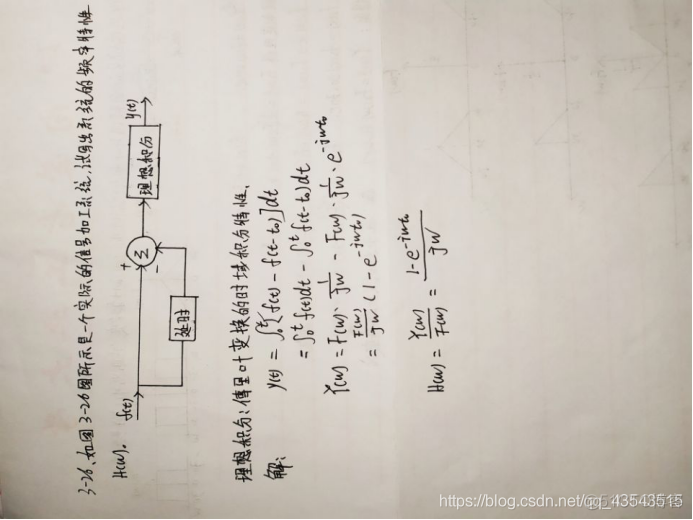 3-26、如图3-26图所示是一个实际的信号加工系统,试写出系统的频率特性
H(w).
f(t)
延时
+
-
Σ
理想积分
y(t)
理想积分:傅里叶变换的时域积分特性、
解:
y(t) = ∫₀ᵗ[f(t) - f(t-t₀)]dt
= ∫₀ᵗ f(t)dt - ∫₀ᵗ f(t-t₀)dt
Y(w) = F(w)·1/jw - F(w)·1/jw·e^-jwt₀
= F(w)/jw (1-e^-jwt₀)
H(w) = Y(w)/F(w) = 1-e^-jwt₀/jw
https://blog.csdn.net/qq_43543515